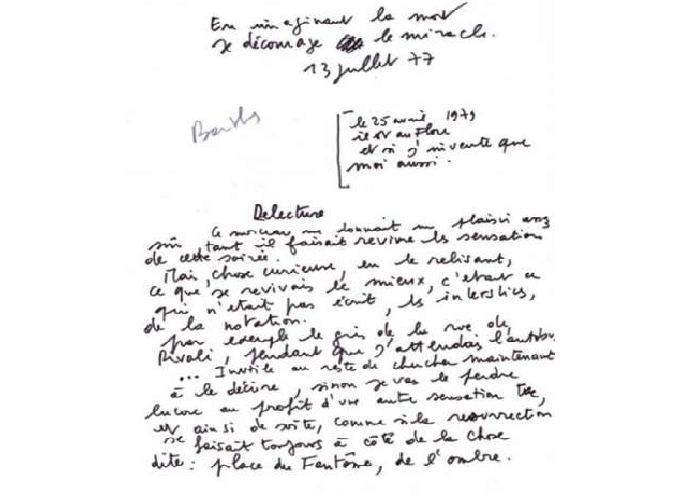 En imaginant la mort
je décourage le miracle.
13 juillet 77
Barthes
le 25 avril 1979
il est au Flore
et si j'invente que
moi aussi.
Delecture
Ce morceau me donnait un plaisir assez
sûr, tant il faisait revivre les sensations
de cette soirée.
Mais, chose curieuse, en le relisant,
ce que je revivais le mieux, c'était ce
qui n'était pas écrit, les interstices,
de la notation.
par exemple le gris de la rue de
Rivoli, pendant que j'attendais l'autobus
... Inutile au reste de chercher maintenant
à le décrire, sinon je vais le perdre
encore au profit d'une autre sensation tue,
et ainsi de suite, comme si la resurrection
se faisait toujours à côté de la chose
dite : place du Fantôme, de l'ombre.